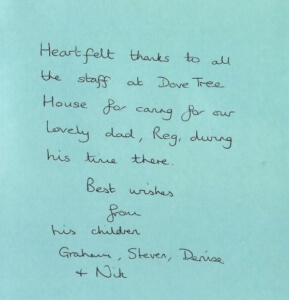 Heartfelt thanks to all
the staff at Dove Tree
House for caring for our
Lovely dad, Reg, during
his time there.
Best wishes
from
his children
Graham, Steven, Denise
+ Nik